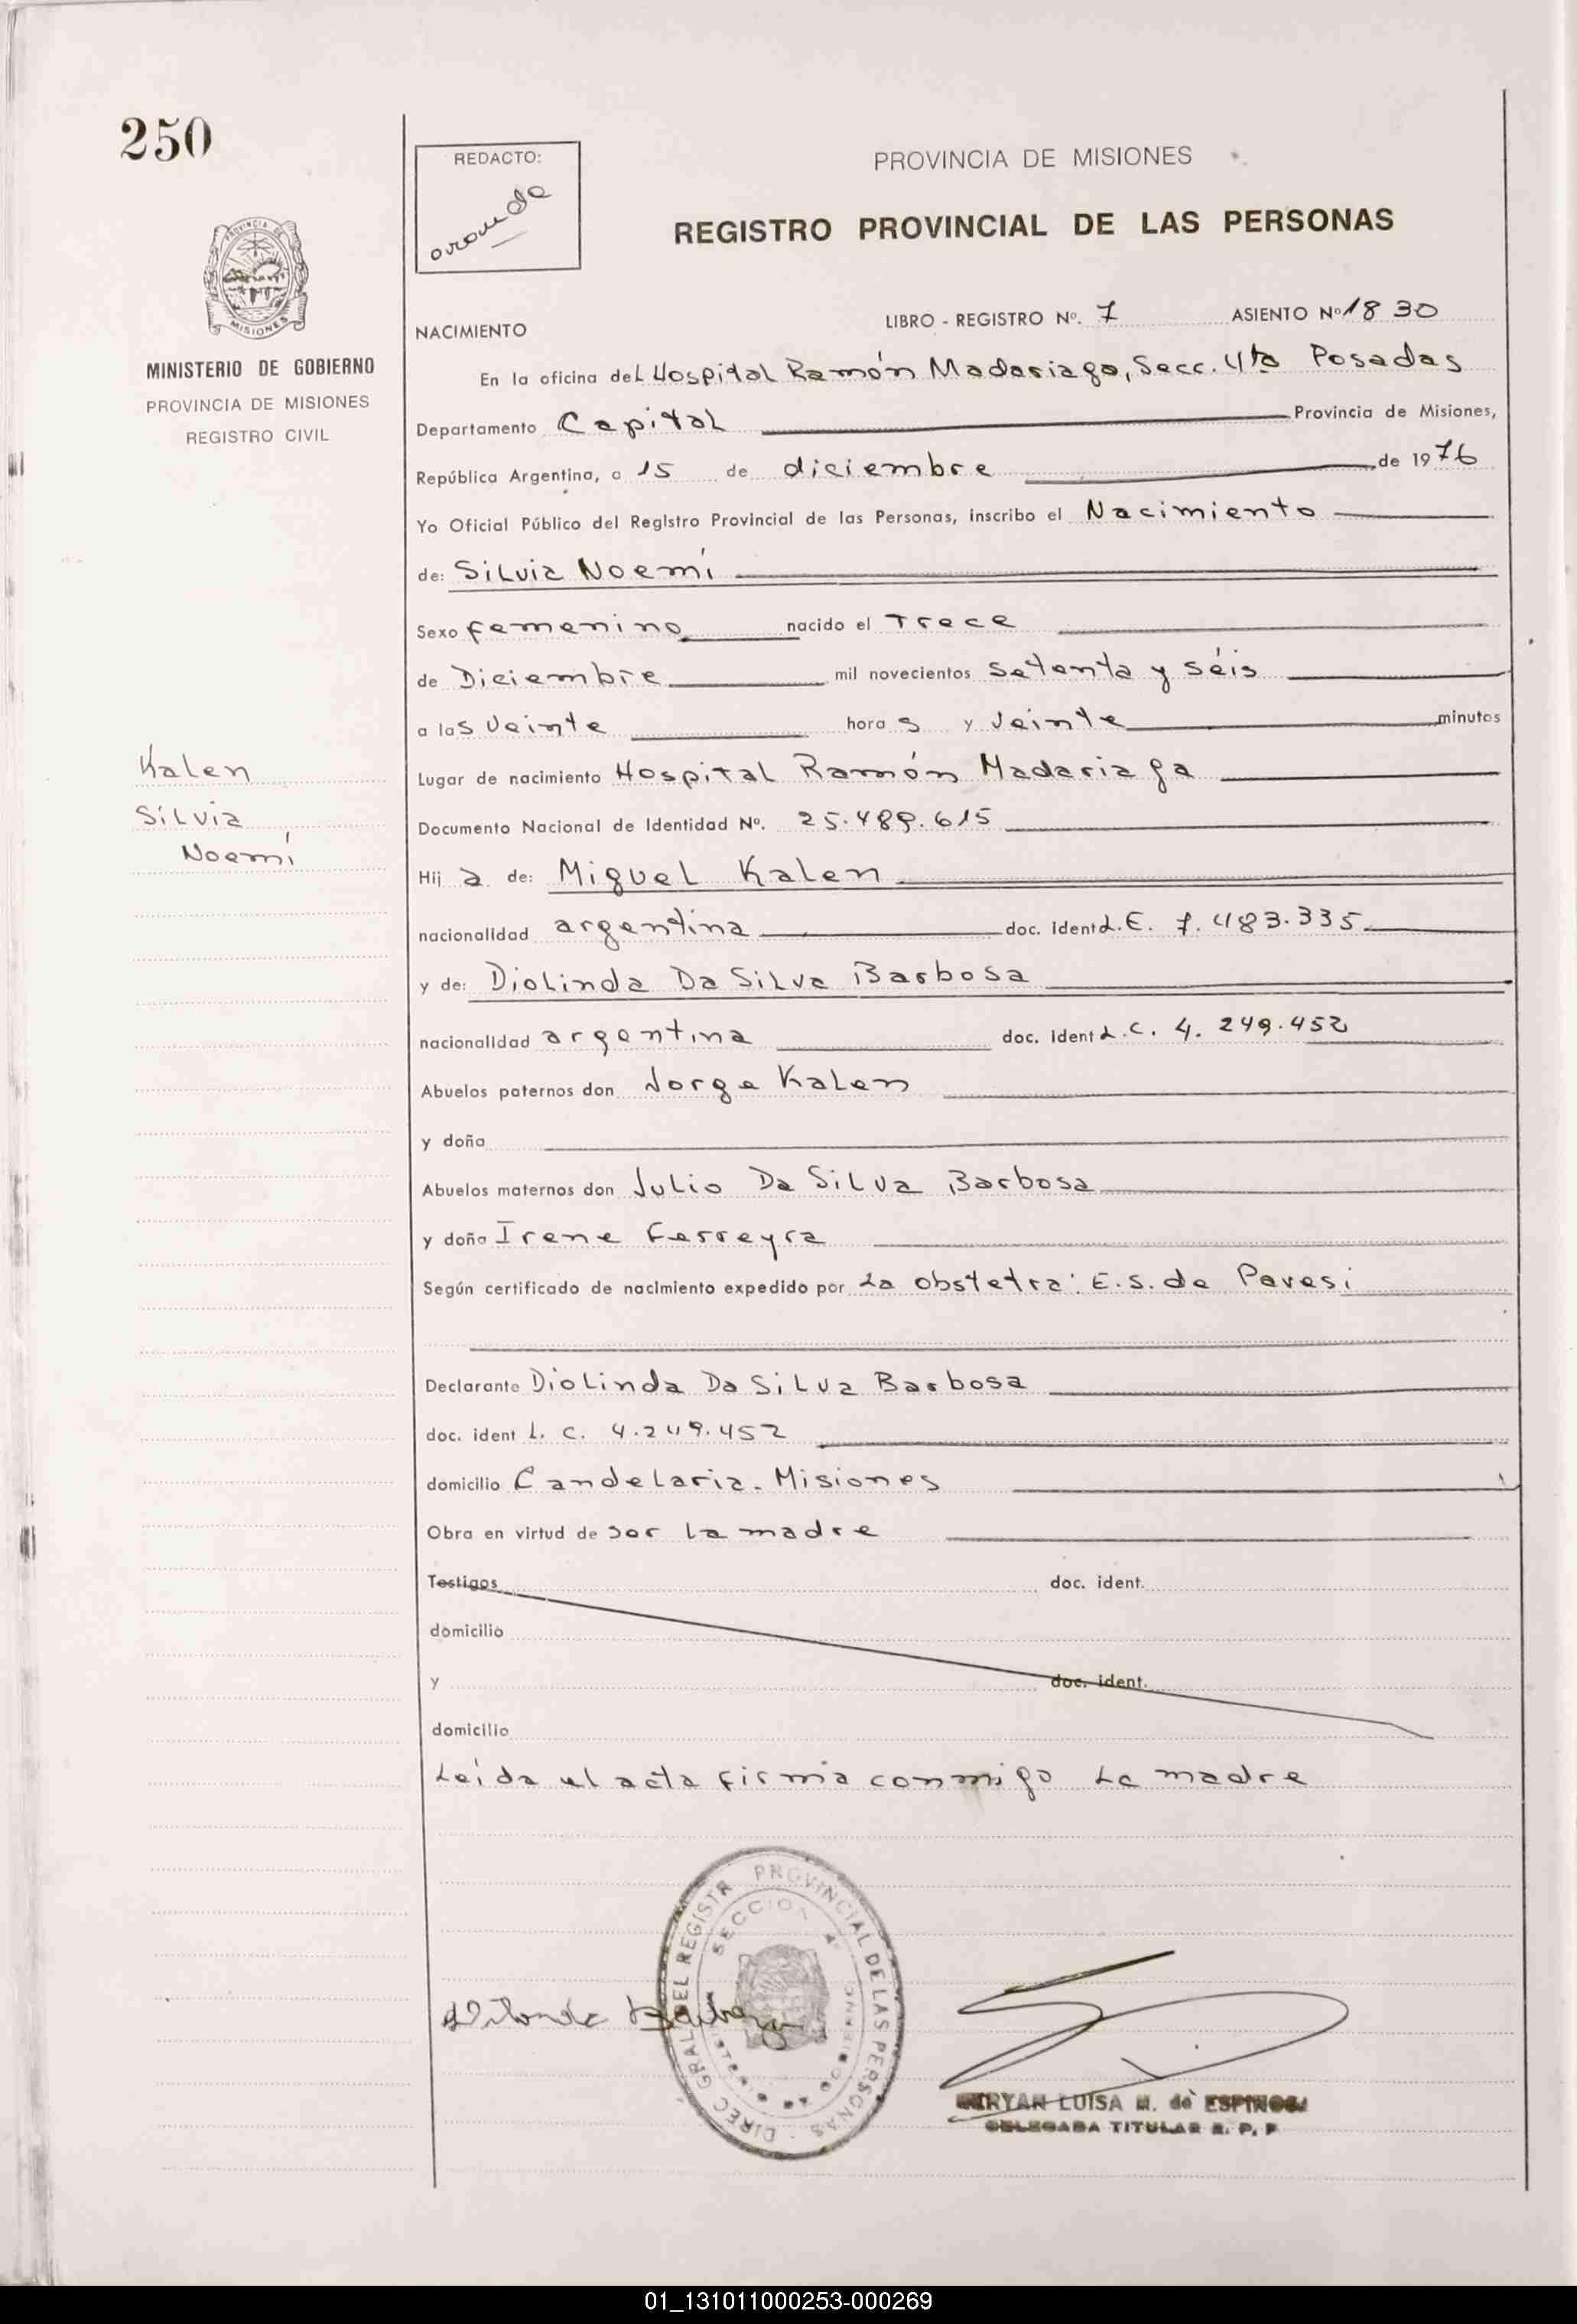 250
REDACTO:
PROVINCIA DE MISIONES
REGISTRO PROVINCIAL DE LAS PERSONAS
PROVINCIA DE
MISIONES
MINISTERIO DE GOBIERNO
PROVINCIA DE MISIONES
REGISTRO CIVIL
NACIMIENTO
LIBRO - REGISTRO Nº. 7 ASIENTO Nº 1830
En la oficina del Hospital Ramón Madariaga, Secc. 4ta Posadas
Departamento Capital Provincia de Misiones,
República Argentina, a 15 de diciembre de 1976
Yo Oficial Público del Registro Provincial de las Personas, inscribo el Nacimiento
de: Silvia Noemí
Sexo femenino nacido el Trece
de Diciembre mil novecientos setenta y séis
a las veinte horas y veinte minutos
Kalen
Silvia
Noemí
Lugar de nacimiento Hospital Ramón Madariaga
Documento Nacional de Identidad Nº. 25.489.615
Hija de: Miguel Kalen
nacionalidad argentina doc. ident L.E. 7.483.335
y de: Diolinda Da Silva Barbosa
nacionalidad argentina doc. ident L.C. 4.249.452
Abuelos paternos don Jorge Kalen
y doña
Abuelos maternos don Julio Da Silva Barbosa
y doña Irene Ferreyra
Según certificado de nacimiento expedido por La obstetra: E.S. de Pavesi
Declarante Diolinda Da Silva Barbosa
doc. ident L. C. 4.249.452
domicilio Candelaria. Misiones
Obra en virtud de ser la madre
Testigos doc. ident.
domicilio
y doc. ident.
domicilio
Leída el acta firma conmigo La madre
DIREC GRAL DEL REGISTR PROVINCIAL DE LAS PERSONAS
SECCION 4ª
LUISA M. de ESPINOSA
DELEGADA TITULAR R. P. P
01_131011000253-000269